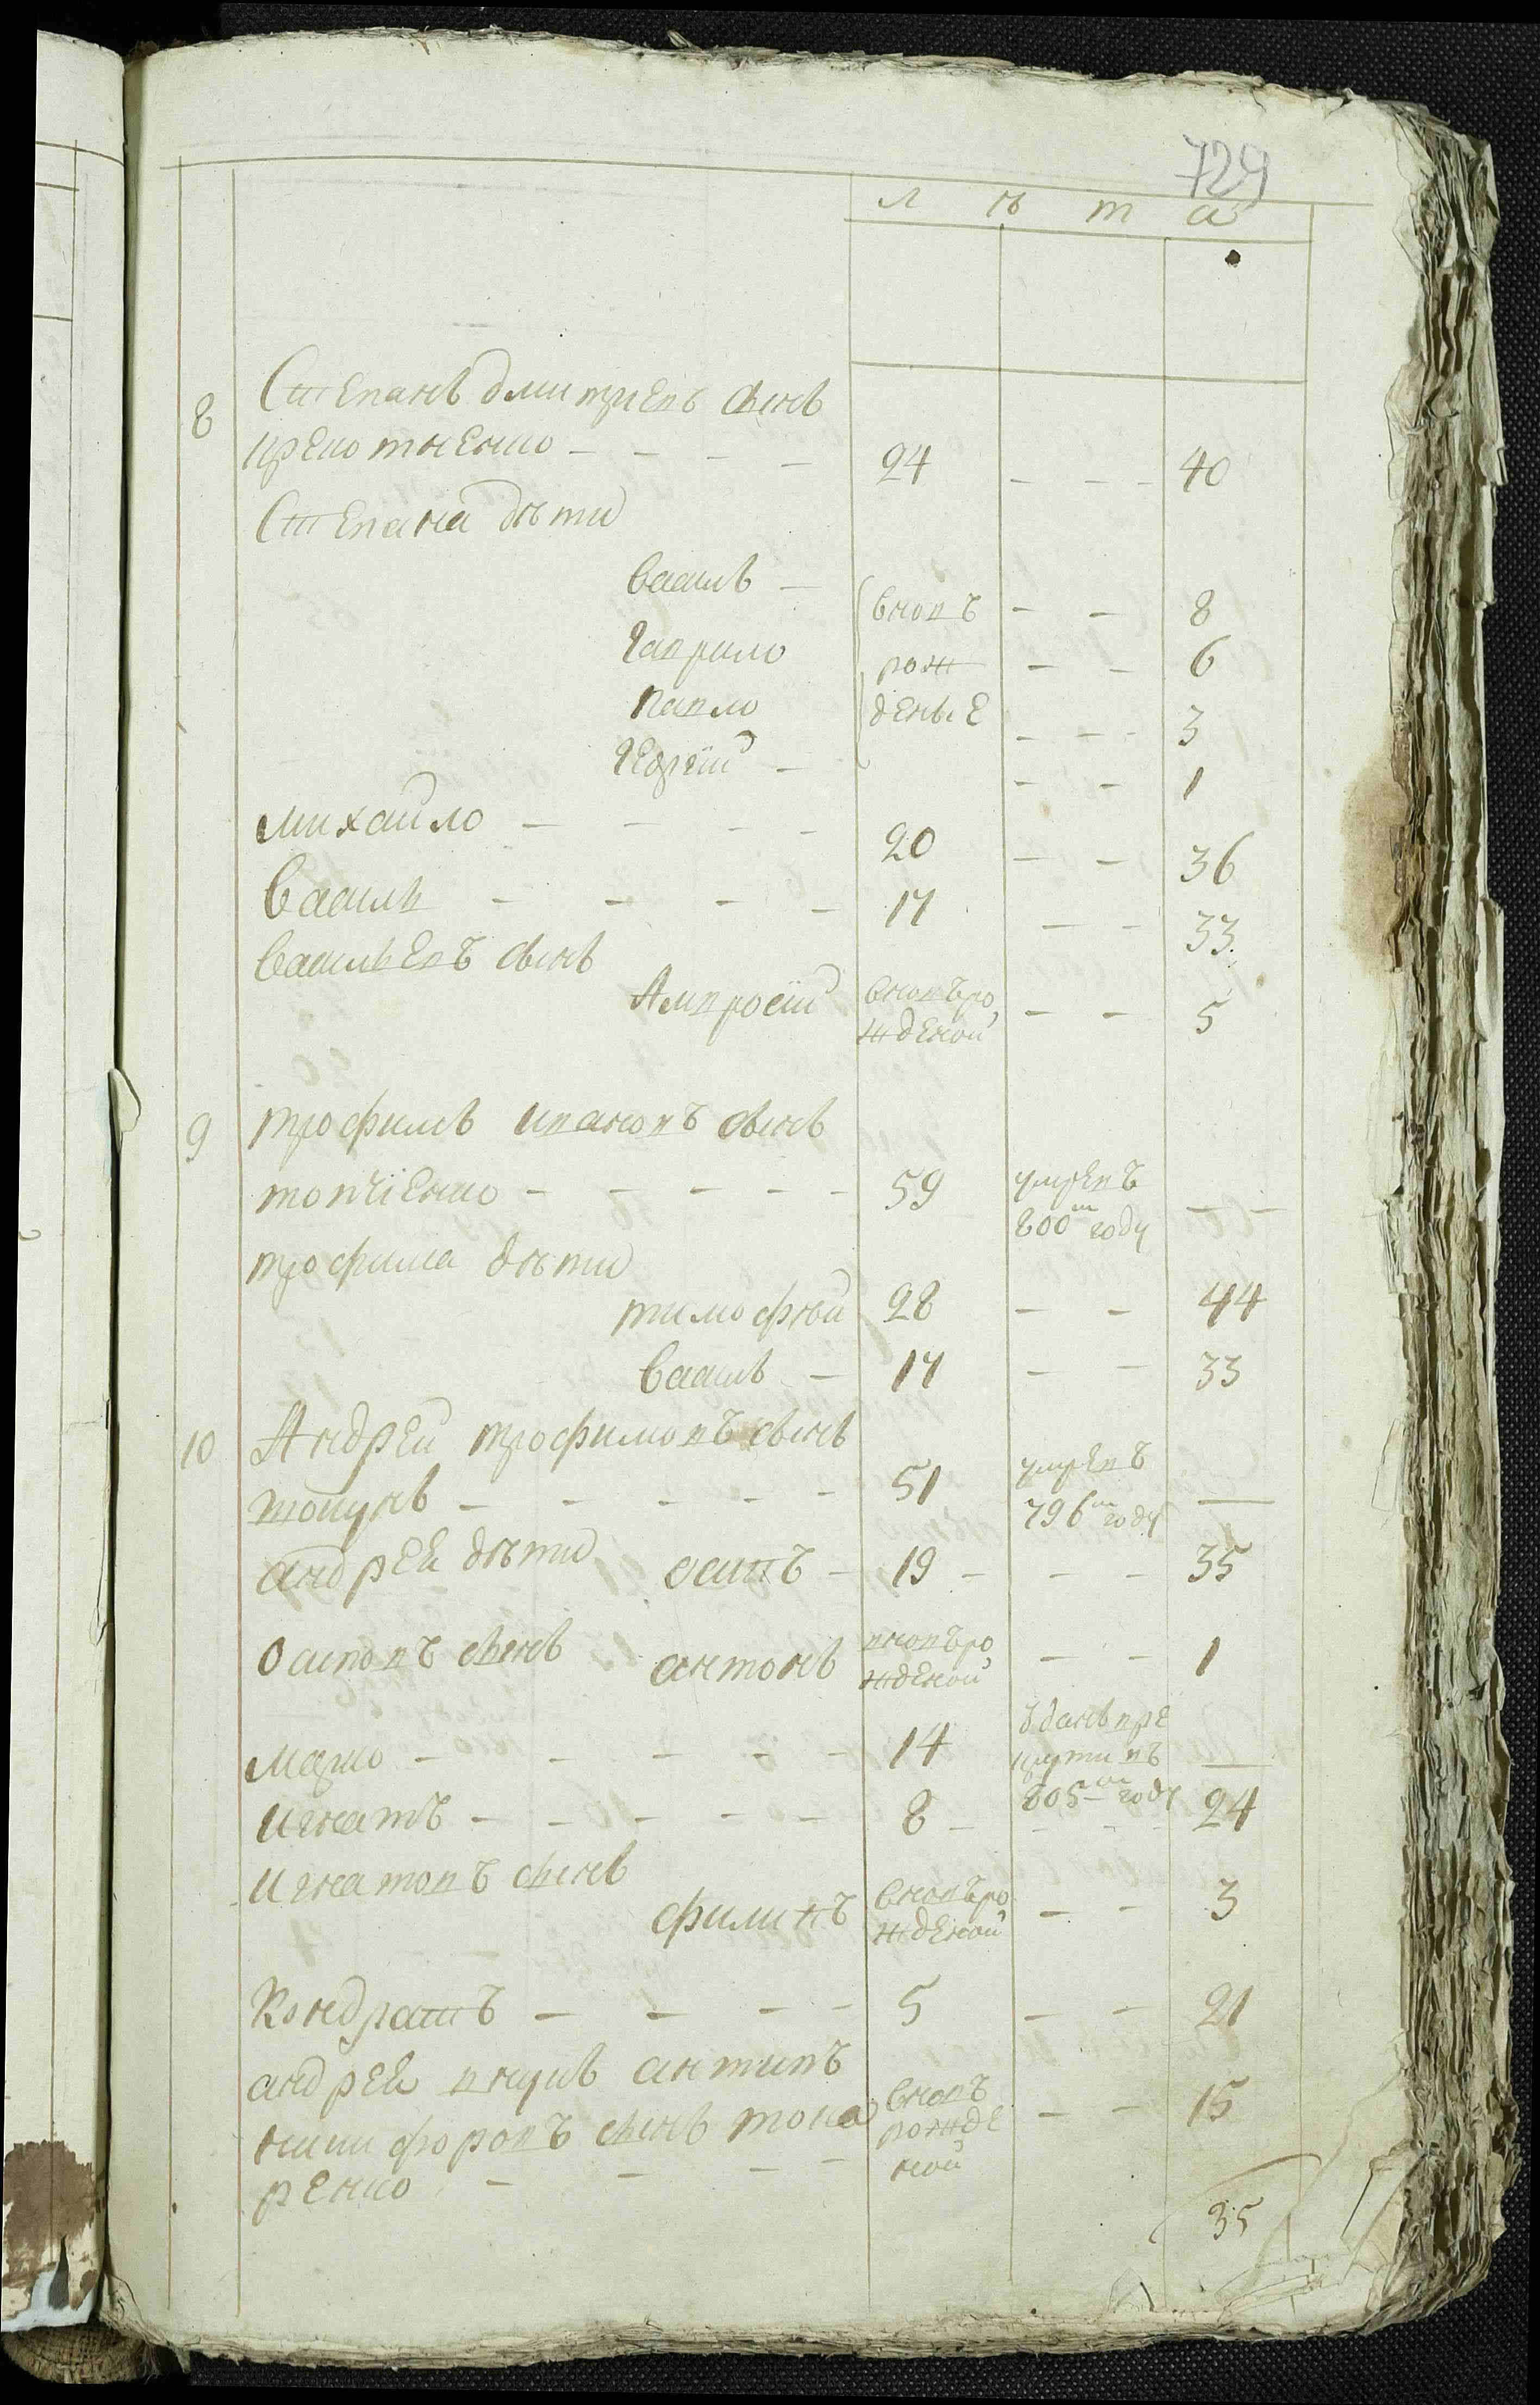 729
л ѣ т а
8 Степанъ дмитриевъ сынъ
кремтненко — — — — 24 — — — 40
Степана дѣти
василь — вновъ — — 8
гаврило рож — — 6
павло деные — — — 3
георгий — — — 1
михаило — — — — 20 — — 36
василь — — — — 17 — — 33
васильевъ сынъ
Амвросий вновъро — — 5
жденой
9 трофимъ ивановъ сынъ
товченко — — — — — 59 умревъ — —
800м году
трофима дѣти
тимофѣй 28 — — 44
василь — 17 — — 33
10 Андрей трофимовъ сынъ
токарь — — — — — 51 умревъ —
796м году
андрея дѣти осипъ — 19 — — — 35
осиповъ сынъ антонъ вновъро — — 1
жденой
марко — — — — — 14 зданъ вре
круты въ —
805м году
игнатъ — — — — — 8 — — — — 24
игнатовъ сынъ
филипъ вновъро — — 3
жденой
Кондратъ — — — — 5 — — 21
андрея внукъ антипъ
никифоровъ сынъ тока вновъ — — 15
ренко — — — — рожде
ной
35